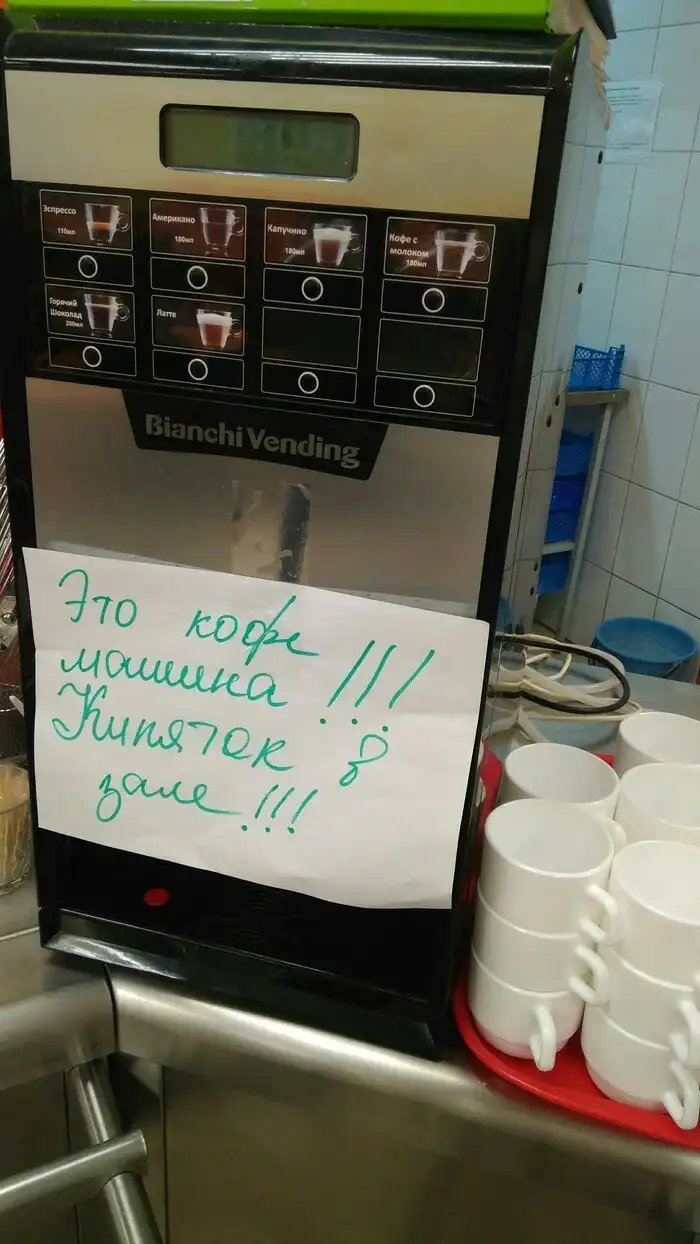 Эспрессо
110мл
Американо
180мл
Капучино
180мл
Кофе с
молоком
180мл
Горячий
Шоколад
200мл
Латте
Bianchi Vending
Это кофе
машина !!!
Кипяток в
зале !!!